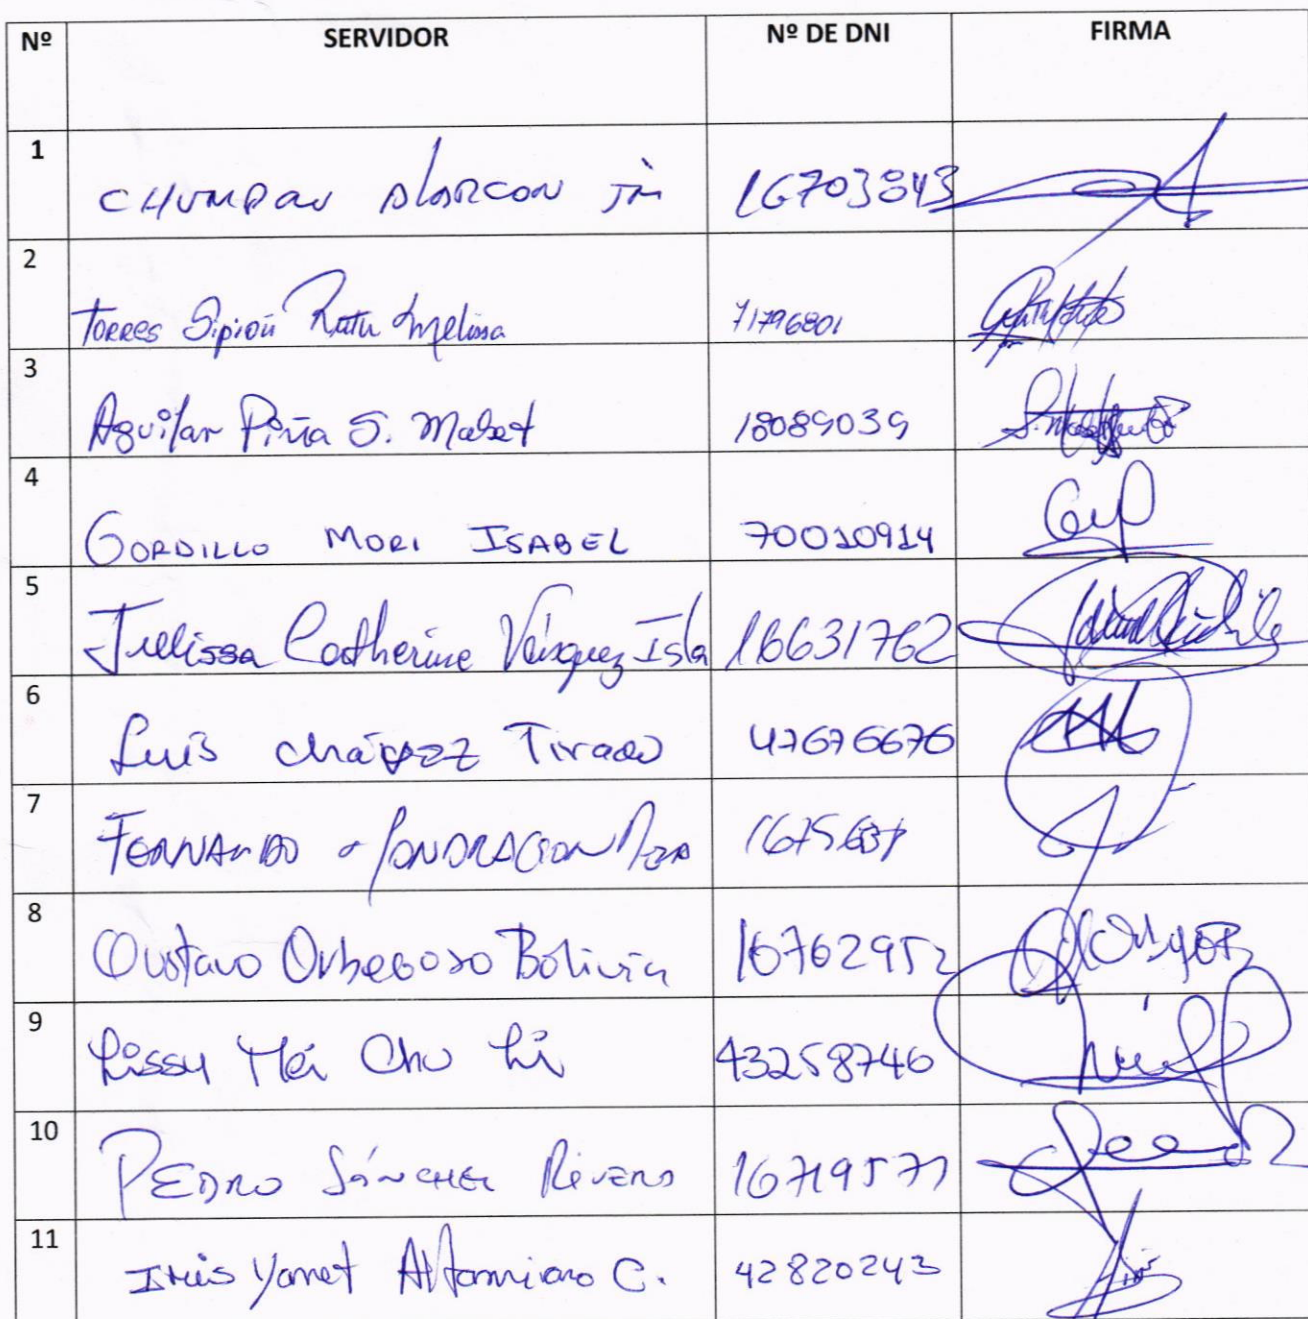 Nº SERVIDOR Nº DE DNI FIRMA
1 CHUMPAN ALARCON 16703843
2 TORRES Sipión Ruth Melissa 71796801
3 Aguilar Piña S. Mabet 18089039
4 GORDILLO MORI ISABEL 70010914
5 Julissa Catherine Vásquez Isla 16631762
6 Luis Chávez Tirado 47676676
7 FERNANDO
8 Gustavo Orbegoso Bolivia 16762952
9 Lissy Mei Chu Li 43258746
10 PEDRO SÁNCHEZ Rivero 16719577
11 Iris Yanet Altamirano C. 42820243